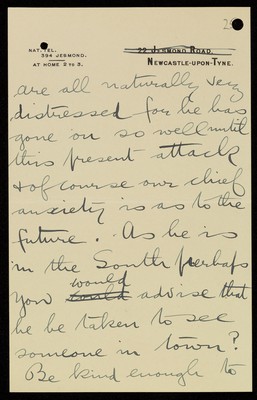 NAT. TEL.
394 JESMOND.
AT HOME 2 TO 3.
22 JESMOND ROAD,
NEWCASTLE-UPON-TYNE.
are all naturally very
distressed for he has
gone on so well until
this present attack
& of course our chief
anxiety is as to the
future. As he is
in the South perhaps
would
you could advise that
he be taken to see
someone in town?
Be kind enough to